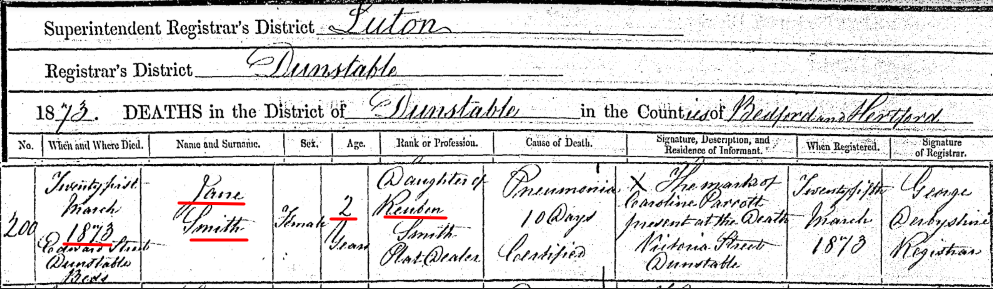 Superintendent Registrar's District Luton
Registrar's District Dunstable
1873. DEATHS in the District of Dunstable in the Counties of Bedford and Hertford
No. When and Where Died. Name and Surname. Sex. Age. Rank or Profession. Cause of Death. Signature, Description, and Residence of Informant. When Registered. Signature of Registrar.
200
Twenty first
March
1873
Edward Street
Dunstable
Beds
Jane
Smith
Female
2
Years
Daughter of
Reuben
Smith
Plat Dealer
Pneumonia
10 Days
Certified
X The mark of
Caroline Parcott
present at the Death
Victoria Street
Dunstable
Twenty fifth
March
1873
George
Derbyshire
Registrar